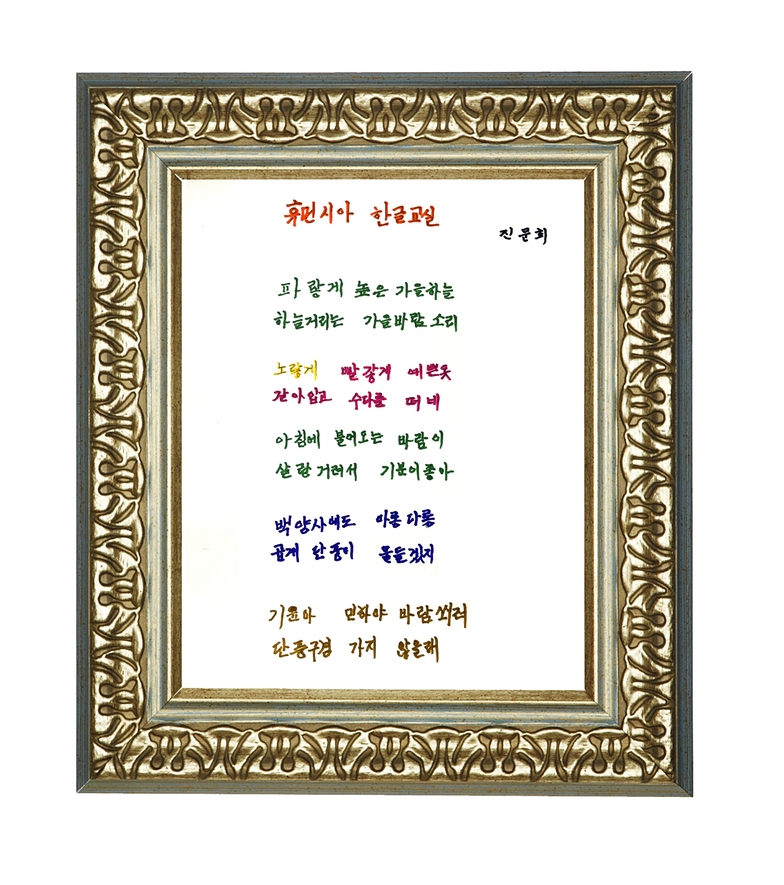 휴먼시아 한글교실
진문희
파랗게 높은 가을하늘
하늘거리는 가을바람소리
노랗게 빨갛게 예쁜옷
갈아입고 수다를 떠네
아침에 불어오는 바람이
살랑거려서 기분이좋아
백양사에도 아롱다롱
곱게 단풍이 물들겠지
기윤아 민하야 바람쐬러
단풍구경 가지 않을래